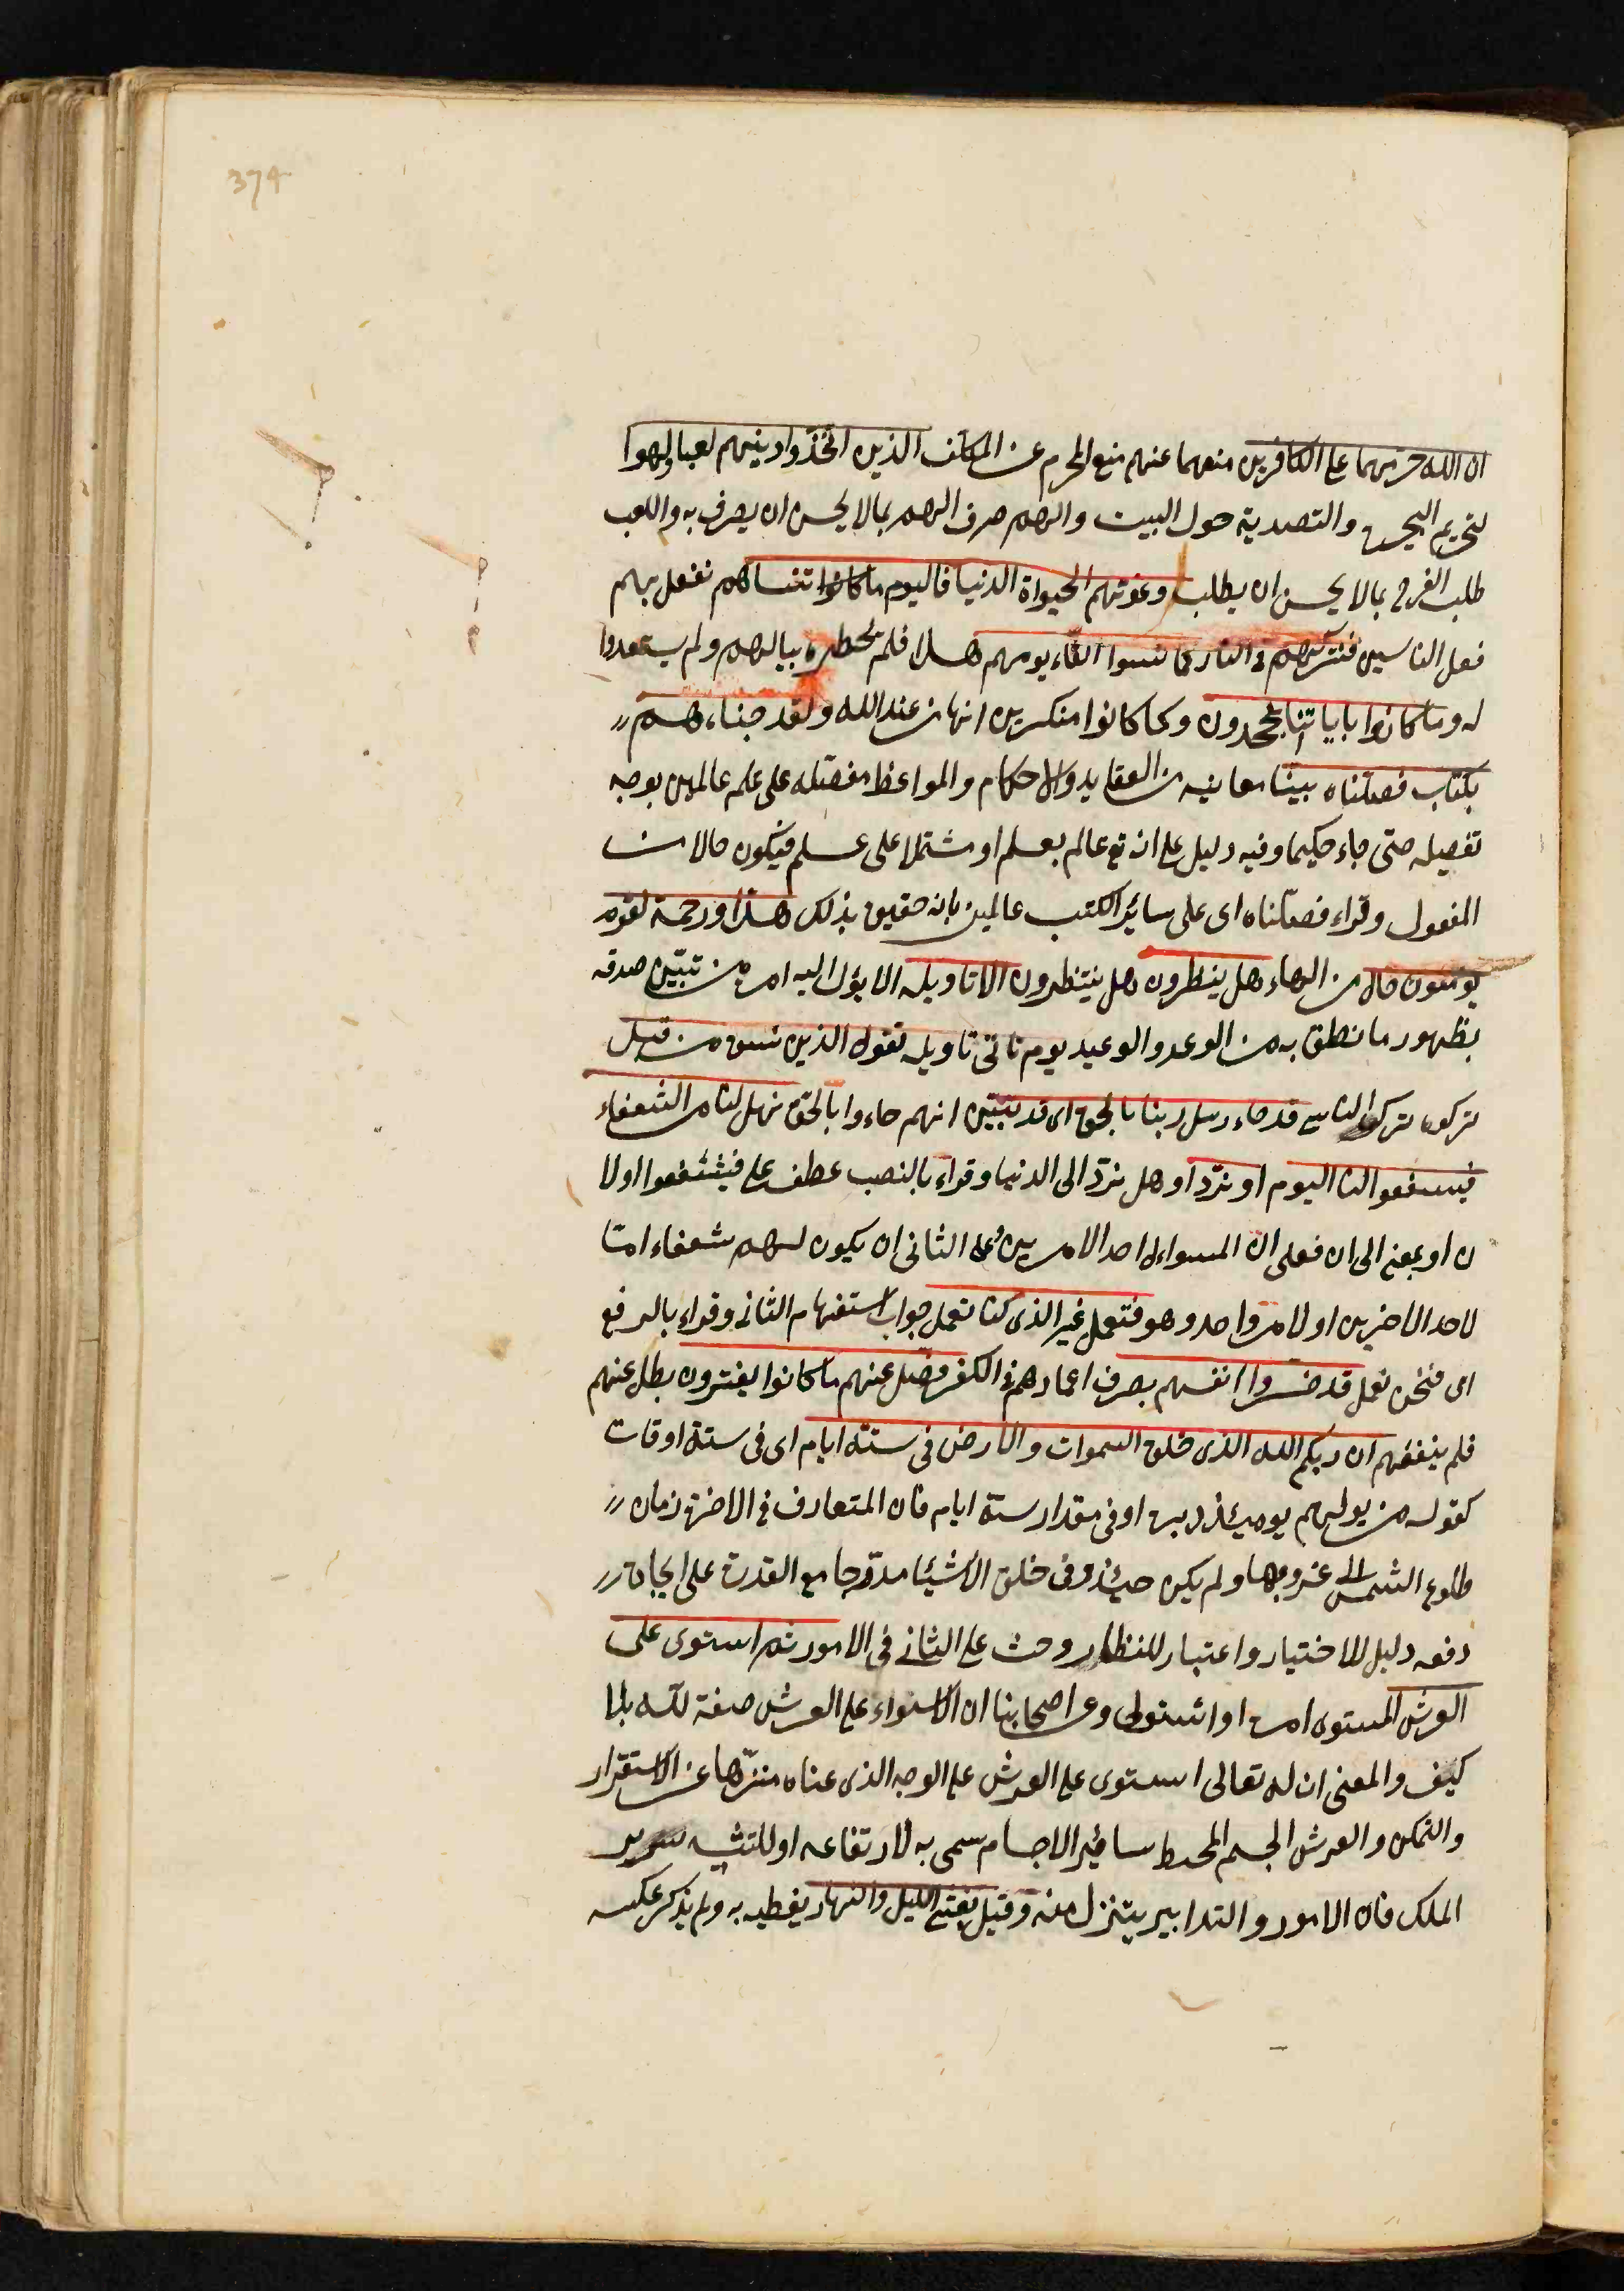 374
ان الله حرمهما على الكافرين منعهما عنهم منع المحرم عن المكلف الذين اتخذوا دينهم لعبا ولهوا
لتحريم البحيرة والتصدية حول البيت واللهو صرف الهم بما لا يحسن ان يصرف به واللعب
طلب الفرح بما لا يحسن ان يطلب وغرتهم الحيواة الدنيا فاليوم ننساهم نفعل بهم
فعل الناسين فنتركهم في النار كما نسوا لقاء يومهم هذا فلم يخطروه ببالهم ولم يستعدوا
له وما كانوا باياتنا يجحدون وكما كانوا منكرين انها من عند الله ولقد جئناهم
بكتاب فصلناه بينا معانيه من العقايد والاحكام والمواعظ مفصله على علم عالمين بوجه
تفصيله حتى جاء حكيما وفيه دليل على انه تع عالم بعلم او مشتملا على علم فيكون حالا من
المفعول وقراء فضلناه اى على سائر الكتب عالمين بانه حقيق بذلك هدا ورحمة لقوم
يومنون حال من الهاء هل ينظرون هل ينتظرون الا تاويله الا ما يؤل اليه امره من تبين صدقه
بظهور ما نطق به من الوعد والوعيد يوم تاتى تاويله تقول الذين نسوه من قبل
تركوه ترك الناسى قد جاء رسل ربنا بالحق اى قد تبين انهم جاءوا بالحق فهل لنا من الشفعاء
فيسفعوا لنا اليوم او نرد او هل نرد الى الدنيا وقراء بالنصب عطف على فيشفعوا اولا
ن او بمعنى الى ان فعلى ان المسواءل احد الامرين وعلى الثانى ان يكون لهم شفعاء امتا
لاحد الاخرين او لامر واحد وهو فنعمل غير الذى كنا نعمل جواب استفهام الثانى وقراء بالرفع
اى فنحن نعمل قد خسروا انفسهم بصرف اعمارهم فى الكفر وضل عنهم ما كانوا يفترون بطل عنهم
فلم ينفعهم ان ربكم الله الذى خلق السموات والارض فى ستة ايام اى فى ستة اوقات
كقوله من يولهم يومئذ دبره او فى مقدار ستة ايام فان المتعارف فى الاخرة زمان
طلوع الشمس الى غروبها ولم يكن حينئذ وفى خلق الاشيئا مدرجا مع القدرة على ايجاد
دفعه دليل للاختيار واعتبار للنظار وحث على الثانى فى الامور ثم استوى على
العرش المستوى امره او استولى وعن اصحابنا ان الاستواء على العرش صفة لله بلا
كيف والمعنى ان له تعالى استوى على العرش على الوجه الذى عناه منزها عن الاستقرار
والتمكن والعرش الجسم المحيط سائر الاجسام سمى به لارتفاعه او للتشبيه بسرير
الملك فان الامور والتدابير يتنزل منه وقيل يغشى الليل والنهار يغطيه به ولم يذكر عكسه